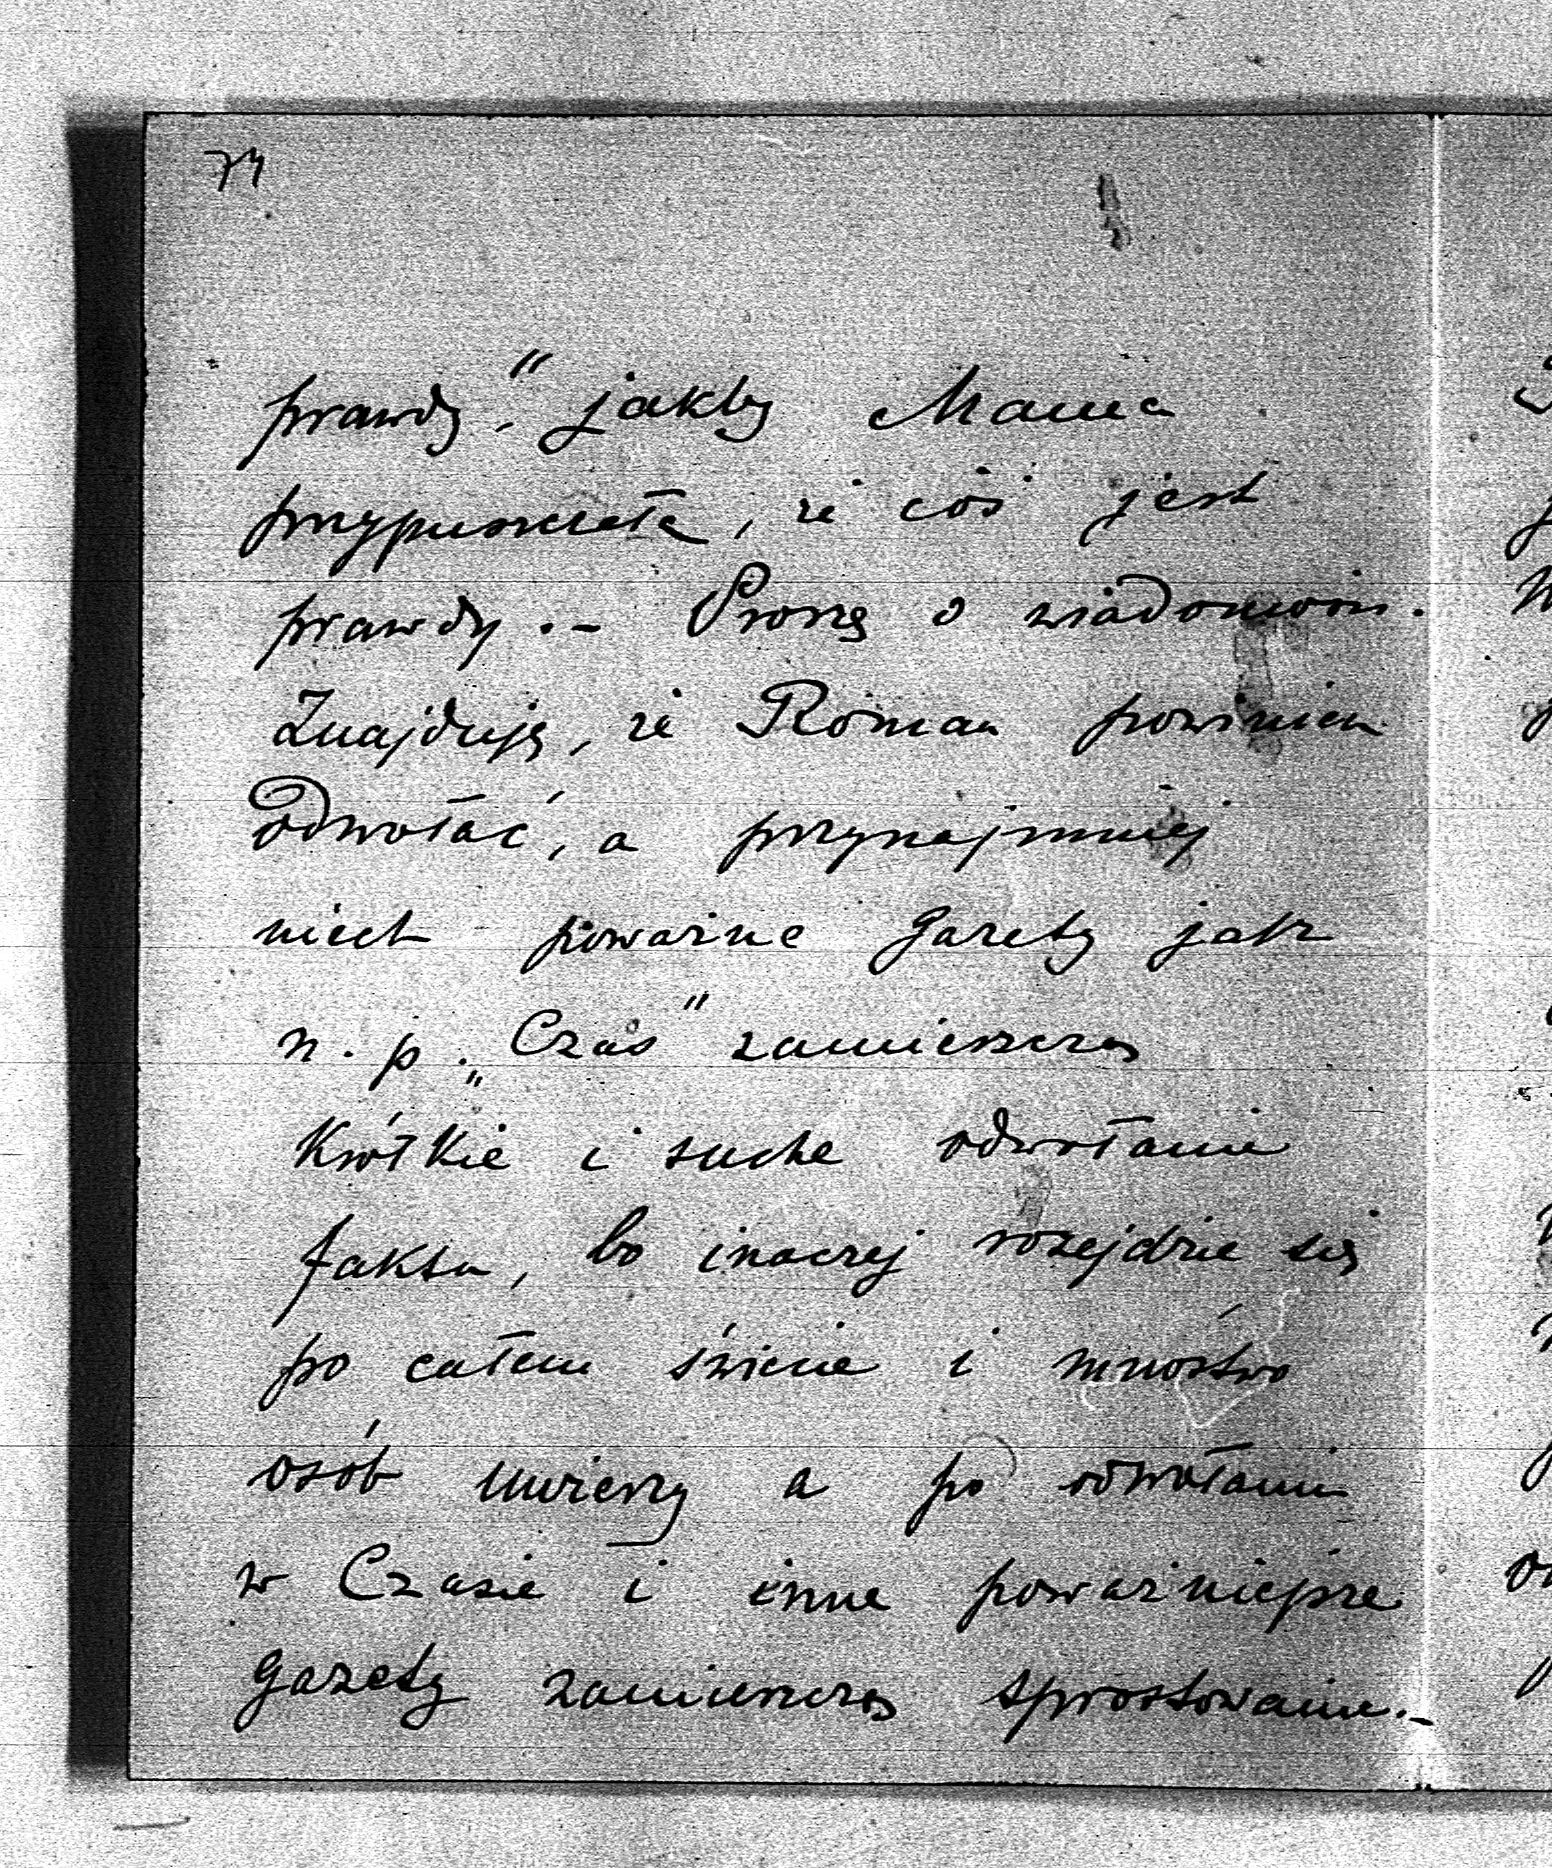 74
prawdy." jakby Mama
przypuszczała, że coś jest
prawdy.- Proszę o wiadomość.
Znajduję, że Roman powinien
odwołać, a przynajmniej
niech poważne gazety jak
n. p. „Czas" zamieszczą
krótkie i suche odwołanie
faktu, bo inaczej rozejdzie się
po całem świecie i mnóstwo
osób uwierzy a po odwołaniu
w Czasie i inne poważniejsze
gazety zamieszczą sprostowanie.-